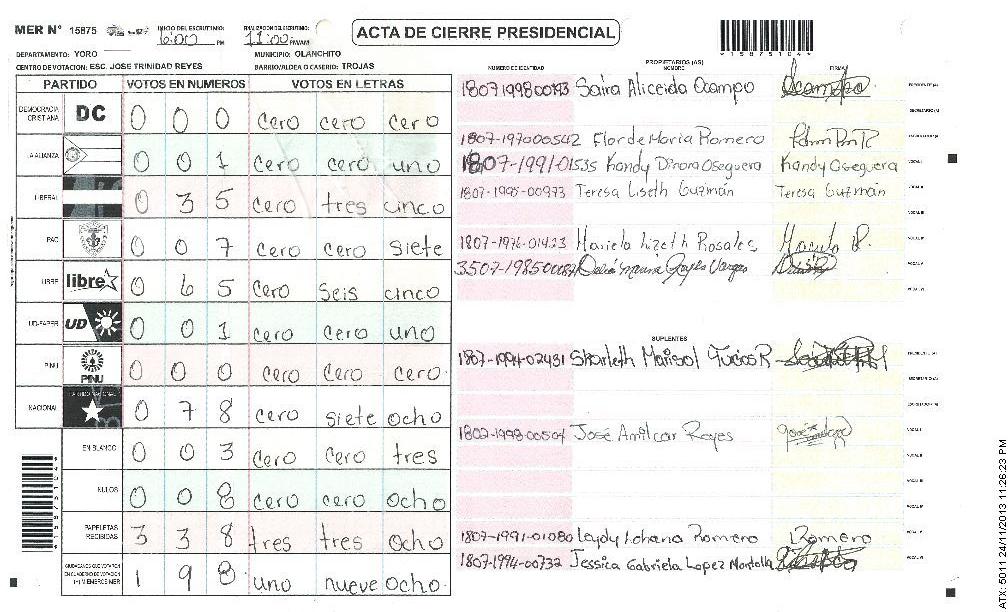 MER N° 15875 INICIO DEL ESCRUTINIO: 6:00 PM FINALIZACION DEL ESCRUTINIO: 11:00 PM/AM ACTA DE CIERRE PRESIDENCIAL
*1587510 4*
DEPARTAMENTO: YORO MUNICIPIO: OLANCHITO
CENTRO DE VOTACION: ESC. JOSE TRINIDAD REYES BARRIO/ALDEA O CASERIO: TROJAS
PARTIDO VOTOS EN NUMEROS VOTOS EN LETRAS
DEMOCRACIA CRISTIANA DC 0 0 0 cero cero cero
LA ALIANZA 0 0 1 cero cero uno
LIBERAL 0 3 5 cero tres cinco
PAC 0 0 7 cero cero siete
LIBRE libre 0 6 5 cero seis cinco
UD-FAPER UD 0 0 1 cero cero uno
PINU PINU 0 0 0 cero cero cero
NACIONAL PARTIDO NACIONAL 0 7 8 cero siete ocho
EN BLANCO 0 0 3 cero cero tres
NULOS 0 0 8 cero cero ocho
PAPELETAS RECIBIDAS 3 3 8 tres tres ocho
CIUDADANOS QUE VOTARON EN CUADERNO DE VOTACION (+) MIEMBROS MER 1 9 8 uno nueve ocho
PROPIETARIOS (AS)
NUMERO DE IDENTIDAD NOMBRE FIRMA
1807-1998 00193 Saira Aliceida Ocampo Ocampo
1807-197000542 Flor de Maria Romero
1807-1991-01535 Kandy Dinora Oseguera Kandy Oseguera
1807-1995-00973 Teresa Liseth Guzmán Teresa Guzmán
1807-1976-01423 Mariela Lizeth Rosales
3507-1985000 Reyes Vargas
SUPLENTES
1807-1994-02431 Sharleth Marisol
1802-1998-00504 José Amilcar Reyes
1807-1991-01080 Leydy Lohana Romero Romero
1807-1994-00732 Jessica Gabriela Lopez
ATX: 5011 24/11/2013 11:26:23 PM